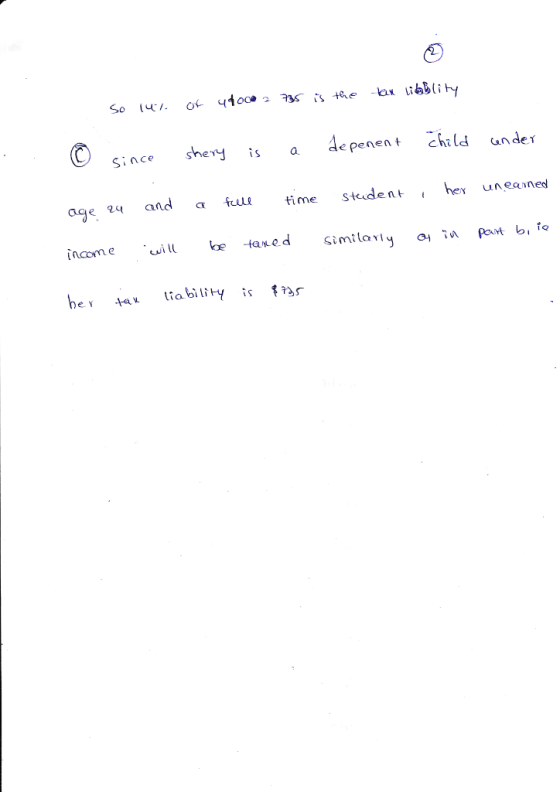 2
So 14% of 49000 = 735 is the tax liability
C since shery is a depenent child under
age 24 and a full time student, her unearned
income will be taxed similarly as in part b, ie
her tax liability is $735